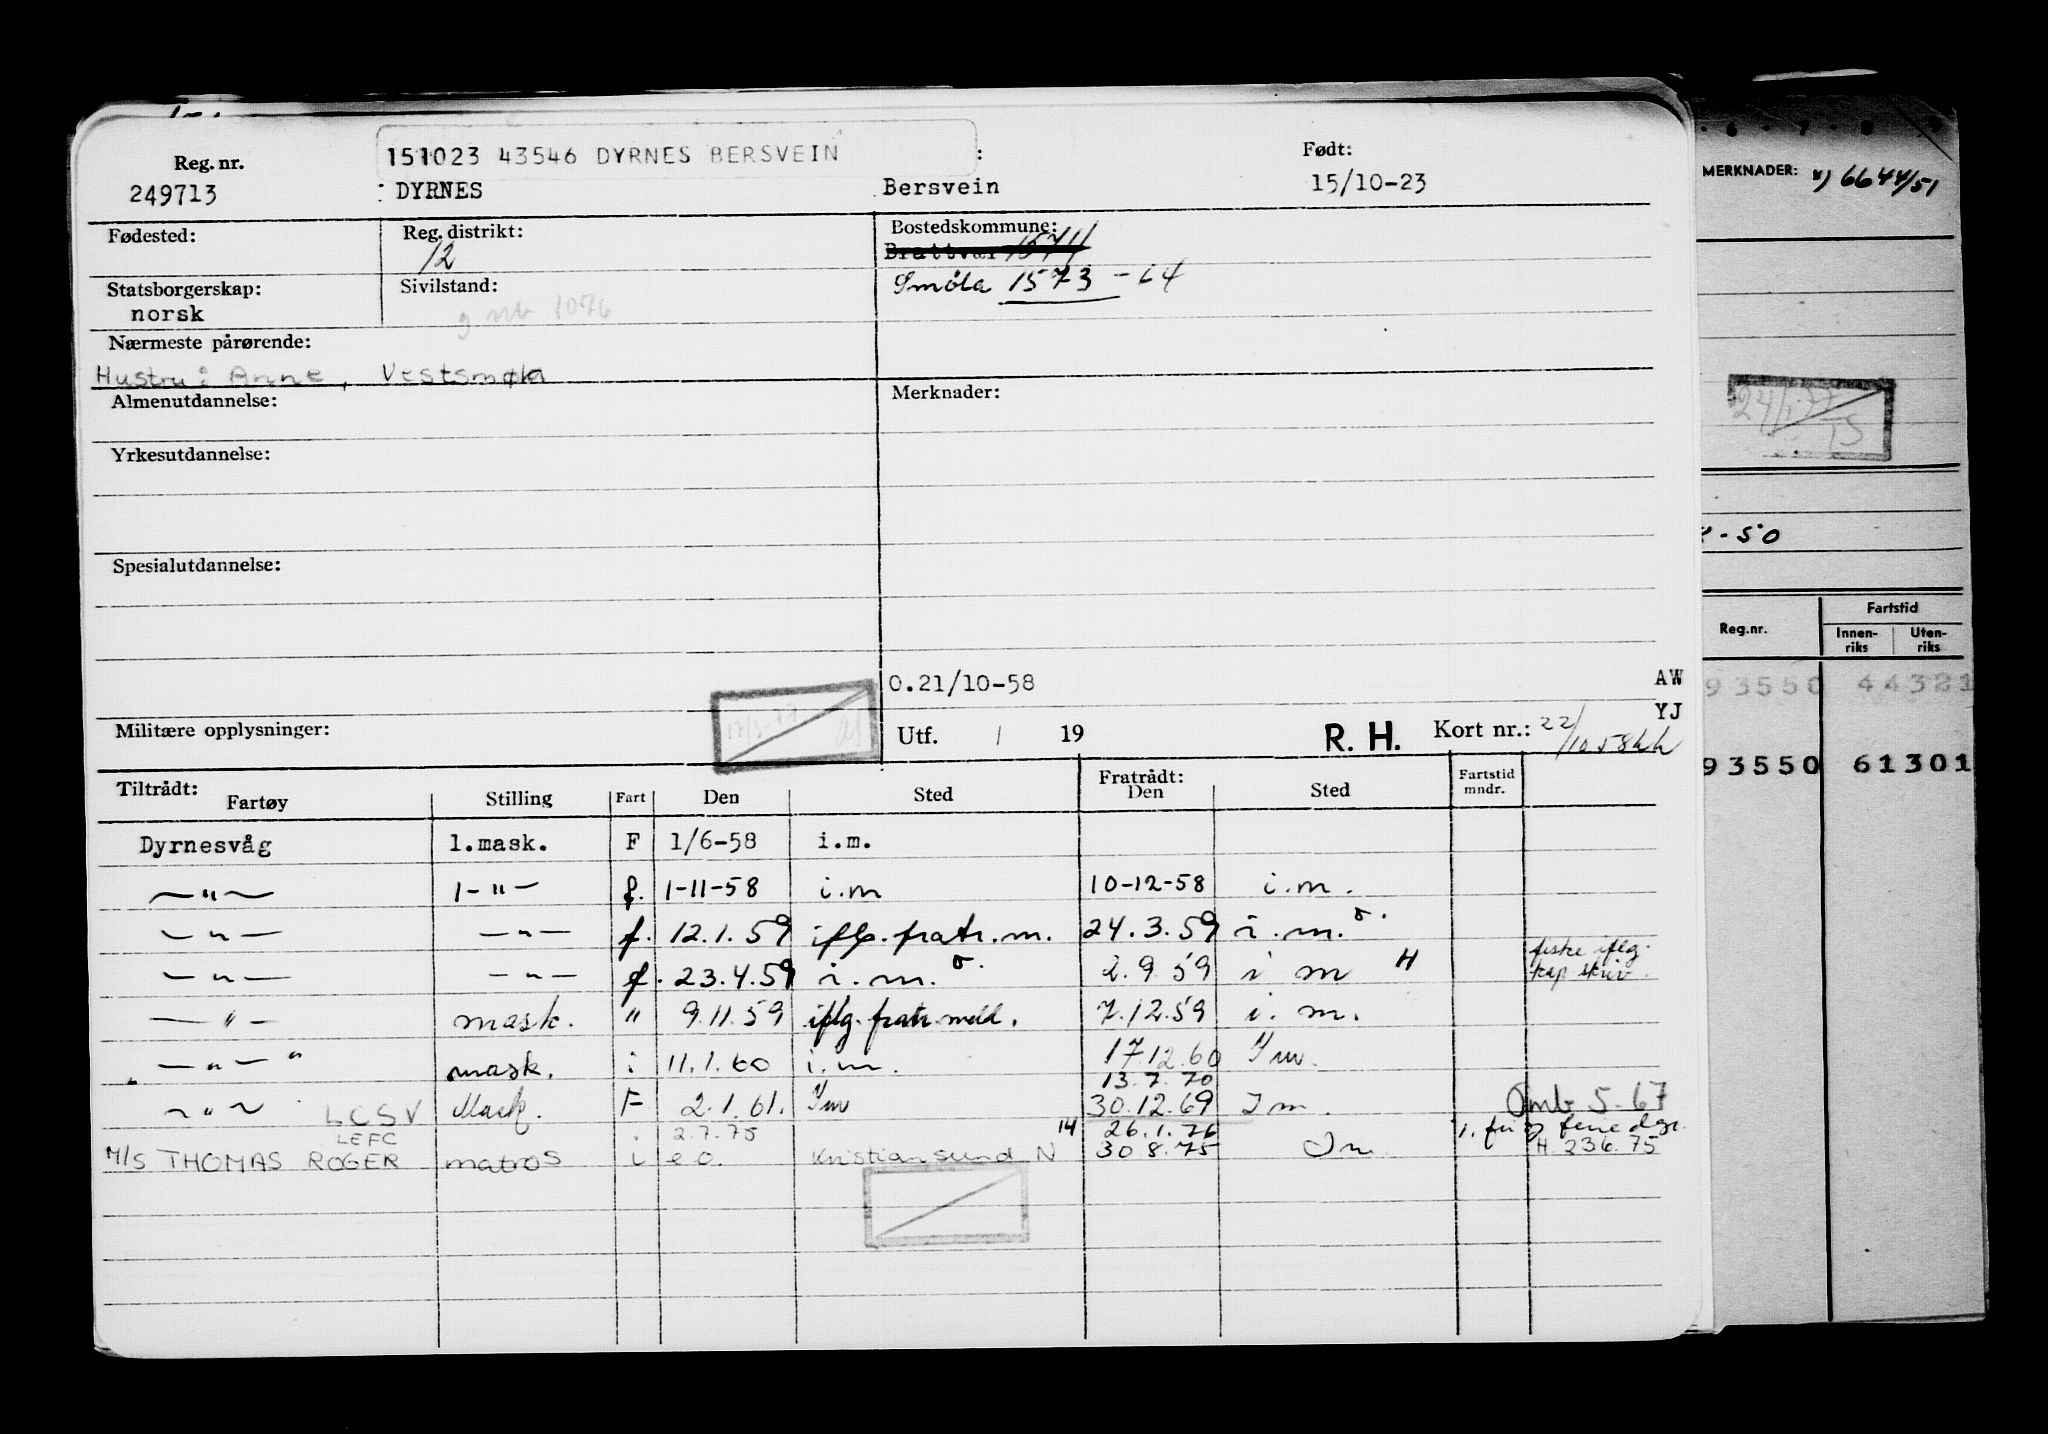 Reg. nr. 151023 43546 DYRNES BERSVEIN : Født:
249713 : DYRNES Bersvein 15/10-23
Fødested: Reg. distrikt: Bostedskommune:
12 Brattvær 1571
Statsborgerskap: Sivilstand: Smöla 1573 - 64
norsk g mb 1076
Nærmeste pårørende:
Hustru: Anne, Vestsmøla
Almenutdannelse: Merknader:
Yrkesutdannelse:
Spesialutdannelse:
0.21/10-58 AW
YJ
Militære opplysninger: Utf. / 19 R. H. Kort nr.: 22/10 58
Tiltrådt: Fartøy Stilling Fart Den Sted Fratrådt: Den Sted Fartstid mndr.
Dyrnesvåg 1.mask. F 1/6-58 i.m.
— " — 1- " - f. 1-11-58 i.m 10-12-58 i.m.
— " — — " — f. 12.1.59 iflg. fratr. m. 24.3.59 i.m.
— " — — " — f. 23.4.59 i.m. 2.9.59 i m H fiske iflg. kap skriv.
— " — mask. " 9.11.59 iflg. fratr. meld. 7.12.59 i.m.
— " — " mask. i 11.1.60 i.m. 17.12.60 Im.
13.7.70
— " — LCSV Mask. F 2.1.61. Im 30.12.69 Im. Omb 5-67
LEFC 2.7.75 14 26.1.76
M/S THOMAS ROGER matros i e.o. Kristiansund N 30 8.75 Im. H 236.75
MERKNADER: 6644/51
24/1-77
- 50
Reg.nr. Fartstid
Innen-riks Uten-riks
93550 44321
93550 61301